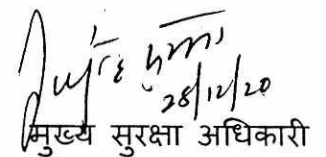 28/12/20
मुख्य सुरक्षा अधिकारी